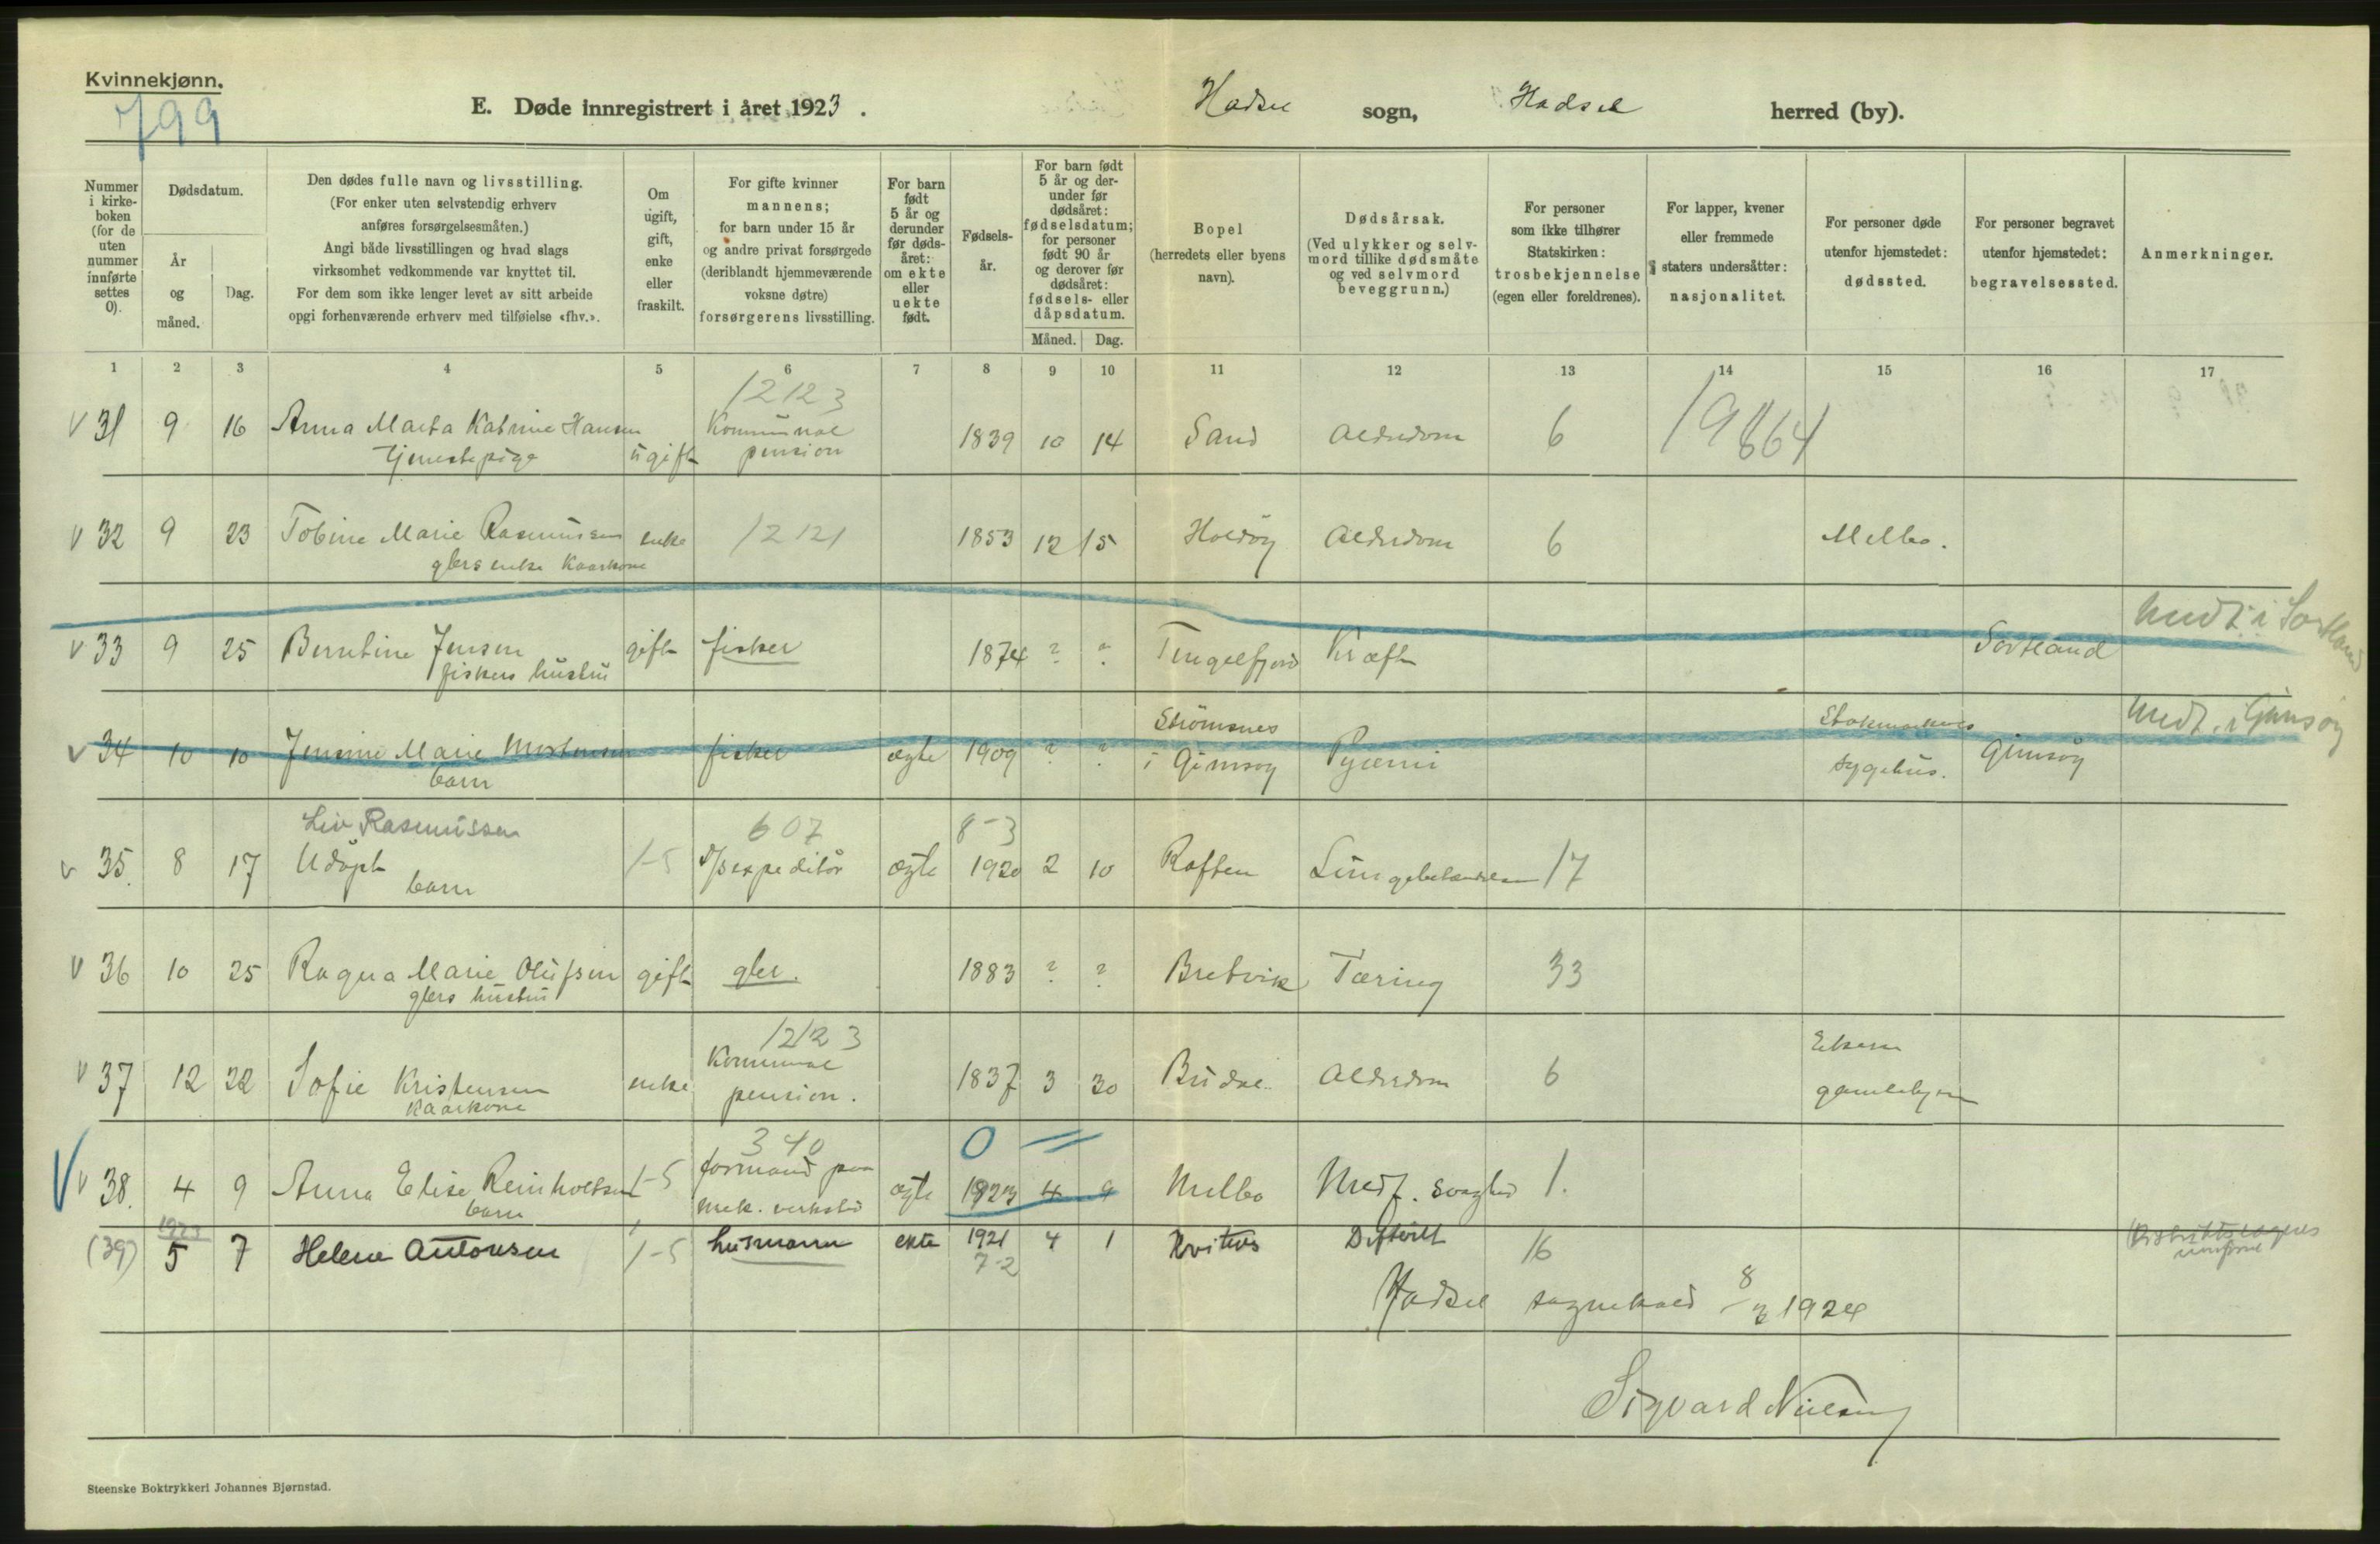 Kvinnekjønn.
799
E. Døde innregistrert i året 1923.
Hadsel sogn, Hadsel herred (by).
Nummer i kirkeboken (for de uten nummer innførte settes 0).
Dødsdatum.
År og måned.
Dag.
Den dødes fulle navn og livsstilling.
(For enker uten selvstendig erhverv
anføres forsørgelsesmåten.)
Angi både livsstillingen og hvad slags
virksomhet vedkommende var knyttet til.
For dem som ikke lenger levet av sitt arbeide
opgi forhenværende erhverv med tilføielse «fhv.».
Om ugift, gift, enke eller fraskilt.
For gifte kvinner
mannens;
for barn under 15 år
og andre privat forsørgede
(deriblandt hjemmeværende
voksne døtre)
forsørgerens livsstilling.
For barn født 5 år og derunder før dødsåret: om ekte eller uekte født.
Fødselsår.
For barn født 5 år og derunder før dødsåret: fødselsdatum; for personer født 90 år og derover før dødsåret: fødsels- eller dåpsdatum.
Måned. Dag.
Bopel
(herredets eller byens
navn).
Dødsårsak.
(Ved ulykker og selvmord tillike dødsmåte og ved selvmord beveggrunn.)
For personer
som ikke tilhører
Statskirken:
trosbekjennelse
(egen eller foreldrenes).
For lapper, kvener
eller fremmede
staters undersåtter:
nasjonalitet.
For personer døde
utenfor hjemstedet:
dødssted.
For personer begravet
utenfor hjemstedet:
begravelsessted.
Anmerkninger.
1 2 3 4 5 6 7 8 9 10 11 12 13 14 15 16 17
12123
V 31 9 16 Anna Marta Katrine Hansen Kommunal 1839 10 14 Sand Alderdom 6 19864
Tjenestepige ugift pension
V 32 9 23 Tobine Marie Rasmussen enke 12121 1853 12 15 Holdøy Alderdom 6 Melbo.
gbrs enke Kaarkone
V 33 9 25 Berntine Jensen gift fisker 1874 ? ? Tengelfjord Kræft Sortland Medt. i Sortland
fiskers hustru
Strömsnes Stokmarknes Medt. i Gimsöy
V 34 10 10 Jensine Marie Mortensen fisker ægte 1909 ? ? i Gimsøy Pyæmi sygehus. Gimsöy
barn
Liv Rasmussen 607 8-3
V 35. 8 17 Udöpt 1-5 D/S expeditör ægte 1920 2 10 Raften Lungebetændelse 17
barn
V 36 10 25 Ragna Marie Olufsen gift gbr. 1883 ? ? Bretvik Tæring 33
gbrs hustru
12123
V 37 12 22 Sofie Kristensen enke Kommunal pension. 1837 3 30 Budal Alderdom 6 gamlehjem
Kaarkone
340 0 =
V V 38. 4 9 Anna Elise Reinholtsen 1-5 formand paa mek. verksted ægte 1923 4 9 Melbo Medf. svaghed 1.
barn
1923
(39) 5 7 Helene Antonsen 1-5 husmann ekte 1921 4 1 Kvitnes Difterit 16 Distriktslægens
7-2
Hadsel sognekald 8/2 1924
Sigvard Nielsen
Steenske Boktrykkeri Johannes Bjørnstad.